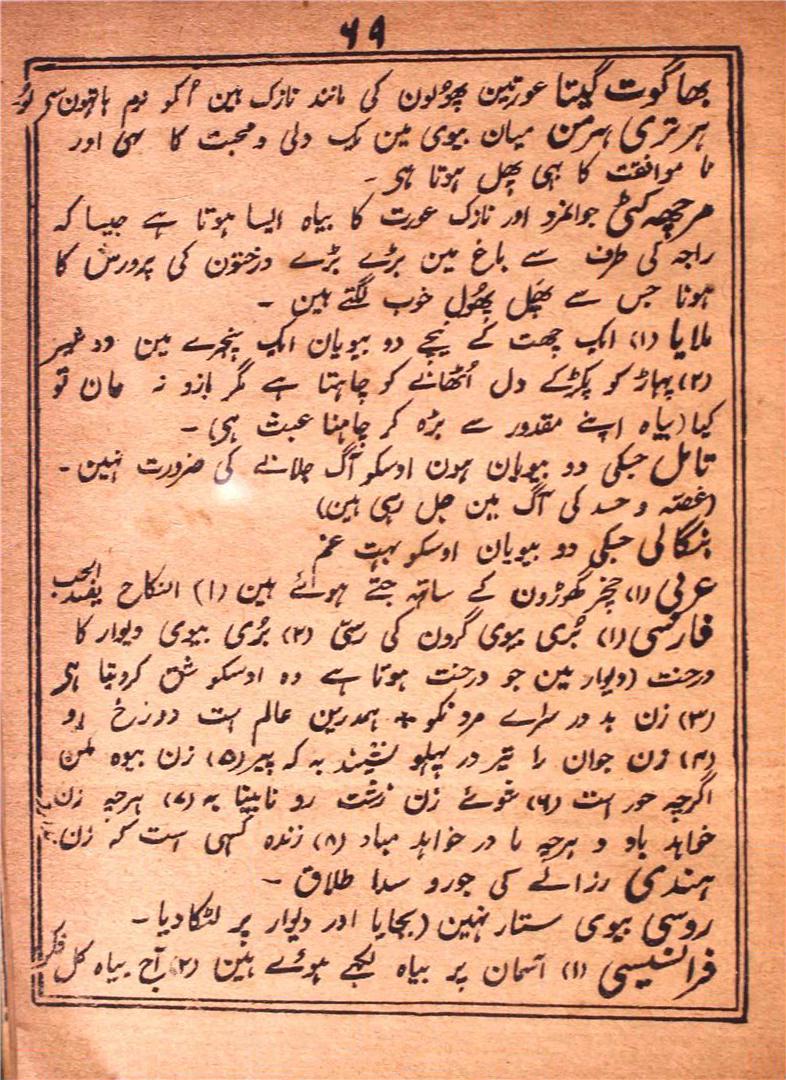 ۶۹
بھاگوت گیتا عورتین پھولون کی مانند نازک ہین اُنکو نرم ہاتھون سی توڑ
ہرتری ہرمن میان بیوی مین یک دلی و محبت کا سہی اور
نا موافقت کا بہی پھل ہوتا ہی ۔
مرچھہ کٹی جوانمرد اور نازک عورت کا بیاہ ایسا ہوتا ہے جیسا کہ
راجہ کی طرف سے باغ مین بڑے بڑے درختون کی پرورش کا
ہونا جس سے پھل پھول خوب لگتے ہین ۔
ملایا (۱) ایک چھت کے نیچے دو بیویان ایک پنجرے مین دو
(۲) پہاڑ کو پکڑکے دل اُٹھانے کو چاہتا ہے مگر بازو نہ مان تو
کیا (بیاہ اپنے مقدور سے بڑہ کر چاہنا عبث ہی) ۔
تامل جسکی دو بیویان ہون اوسکو آگ جلانے کی ضرورت نہین ۔
(غصّہ و حسد کی آگ مین جل رہی ہین)
بنگالی جسکی دو بیویان اوسکو بہت غم
عربی (۱) خچر گھوڑون کے ساتھہ جتے ہوائے ہین (۱) النکاح یفسد الحب
فارسی (۱) بُری بیوی گردن کی رسّی (۲) بُری بیوی دیوار کا
درخت (دیوار مین جو درخت ہوتا ہے وہ اوسکو شق کردیتا ہی
(۳) زن بد در سرائے مرد نکو + ہمدرین عالم است دوزخ او
(۴) زن جوان را تیر در پہلو نشیند بہ کہ پیر (۵) زن بیوہ مکن
اگرچہ حور است (۶) شوئے زن زشت رو نابینا بہ (۷) ہرچہ زن
خواہد باد و ہرچہ ما در خواہد مباد (۸) زندہ کسی است کہ زن
ہندی رزالے کی جورو سدا طلاق ۔
روسی بیوی ستار نہین (بجایا اور دیوار پر لٹکادیا ۔
فرانسیسی (۱) آسمان پر بیاہ لکھے ہوئے ہین (۲) آج بیاہ کل فکر